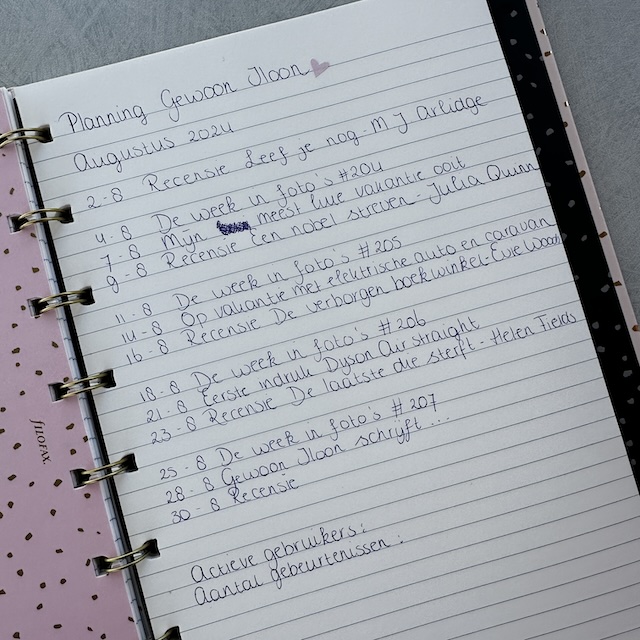 Planning Gewoon Iloon
Augustus 2024
2-8 Recensie Leef je nog - M J Arlidge
4-8 De week in foto's #204
7-8 Mijn meest luie vakantie ooit
9-8 Recensie Een nobel streven - Julia Quinn
11-8 De week in foto's #205
14-8 Op vakantie met elektrische auto en caravan
16-8 Recensie De verborgen boekwinkel - Evie Woods
18-8 De week in foto's #206
21-8 Eerste indruk Dyson Airstraight
23-8 Recensie De laatste die sterft - Helen Fields
25-8 De week in foto's #207
28-8 Gewoon Iloon schrijft ...
30-8 Recensie
Actieve gebruikers:
Aantal gebeurtenissen:
filofax